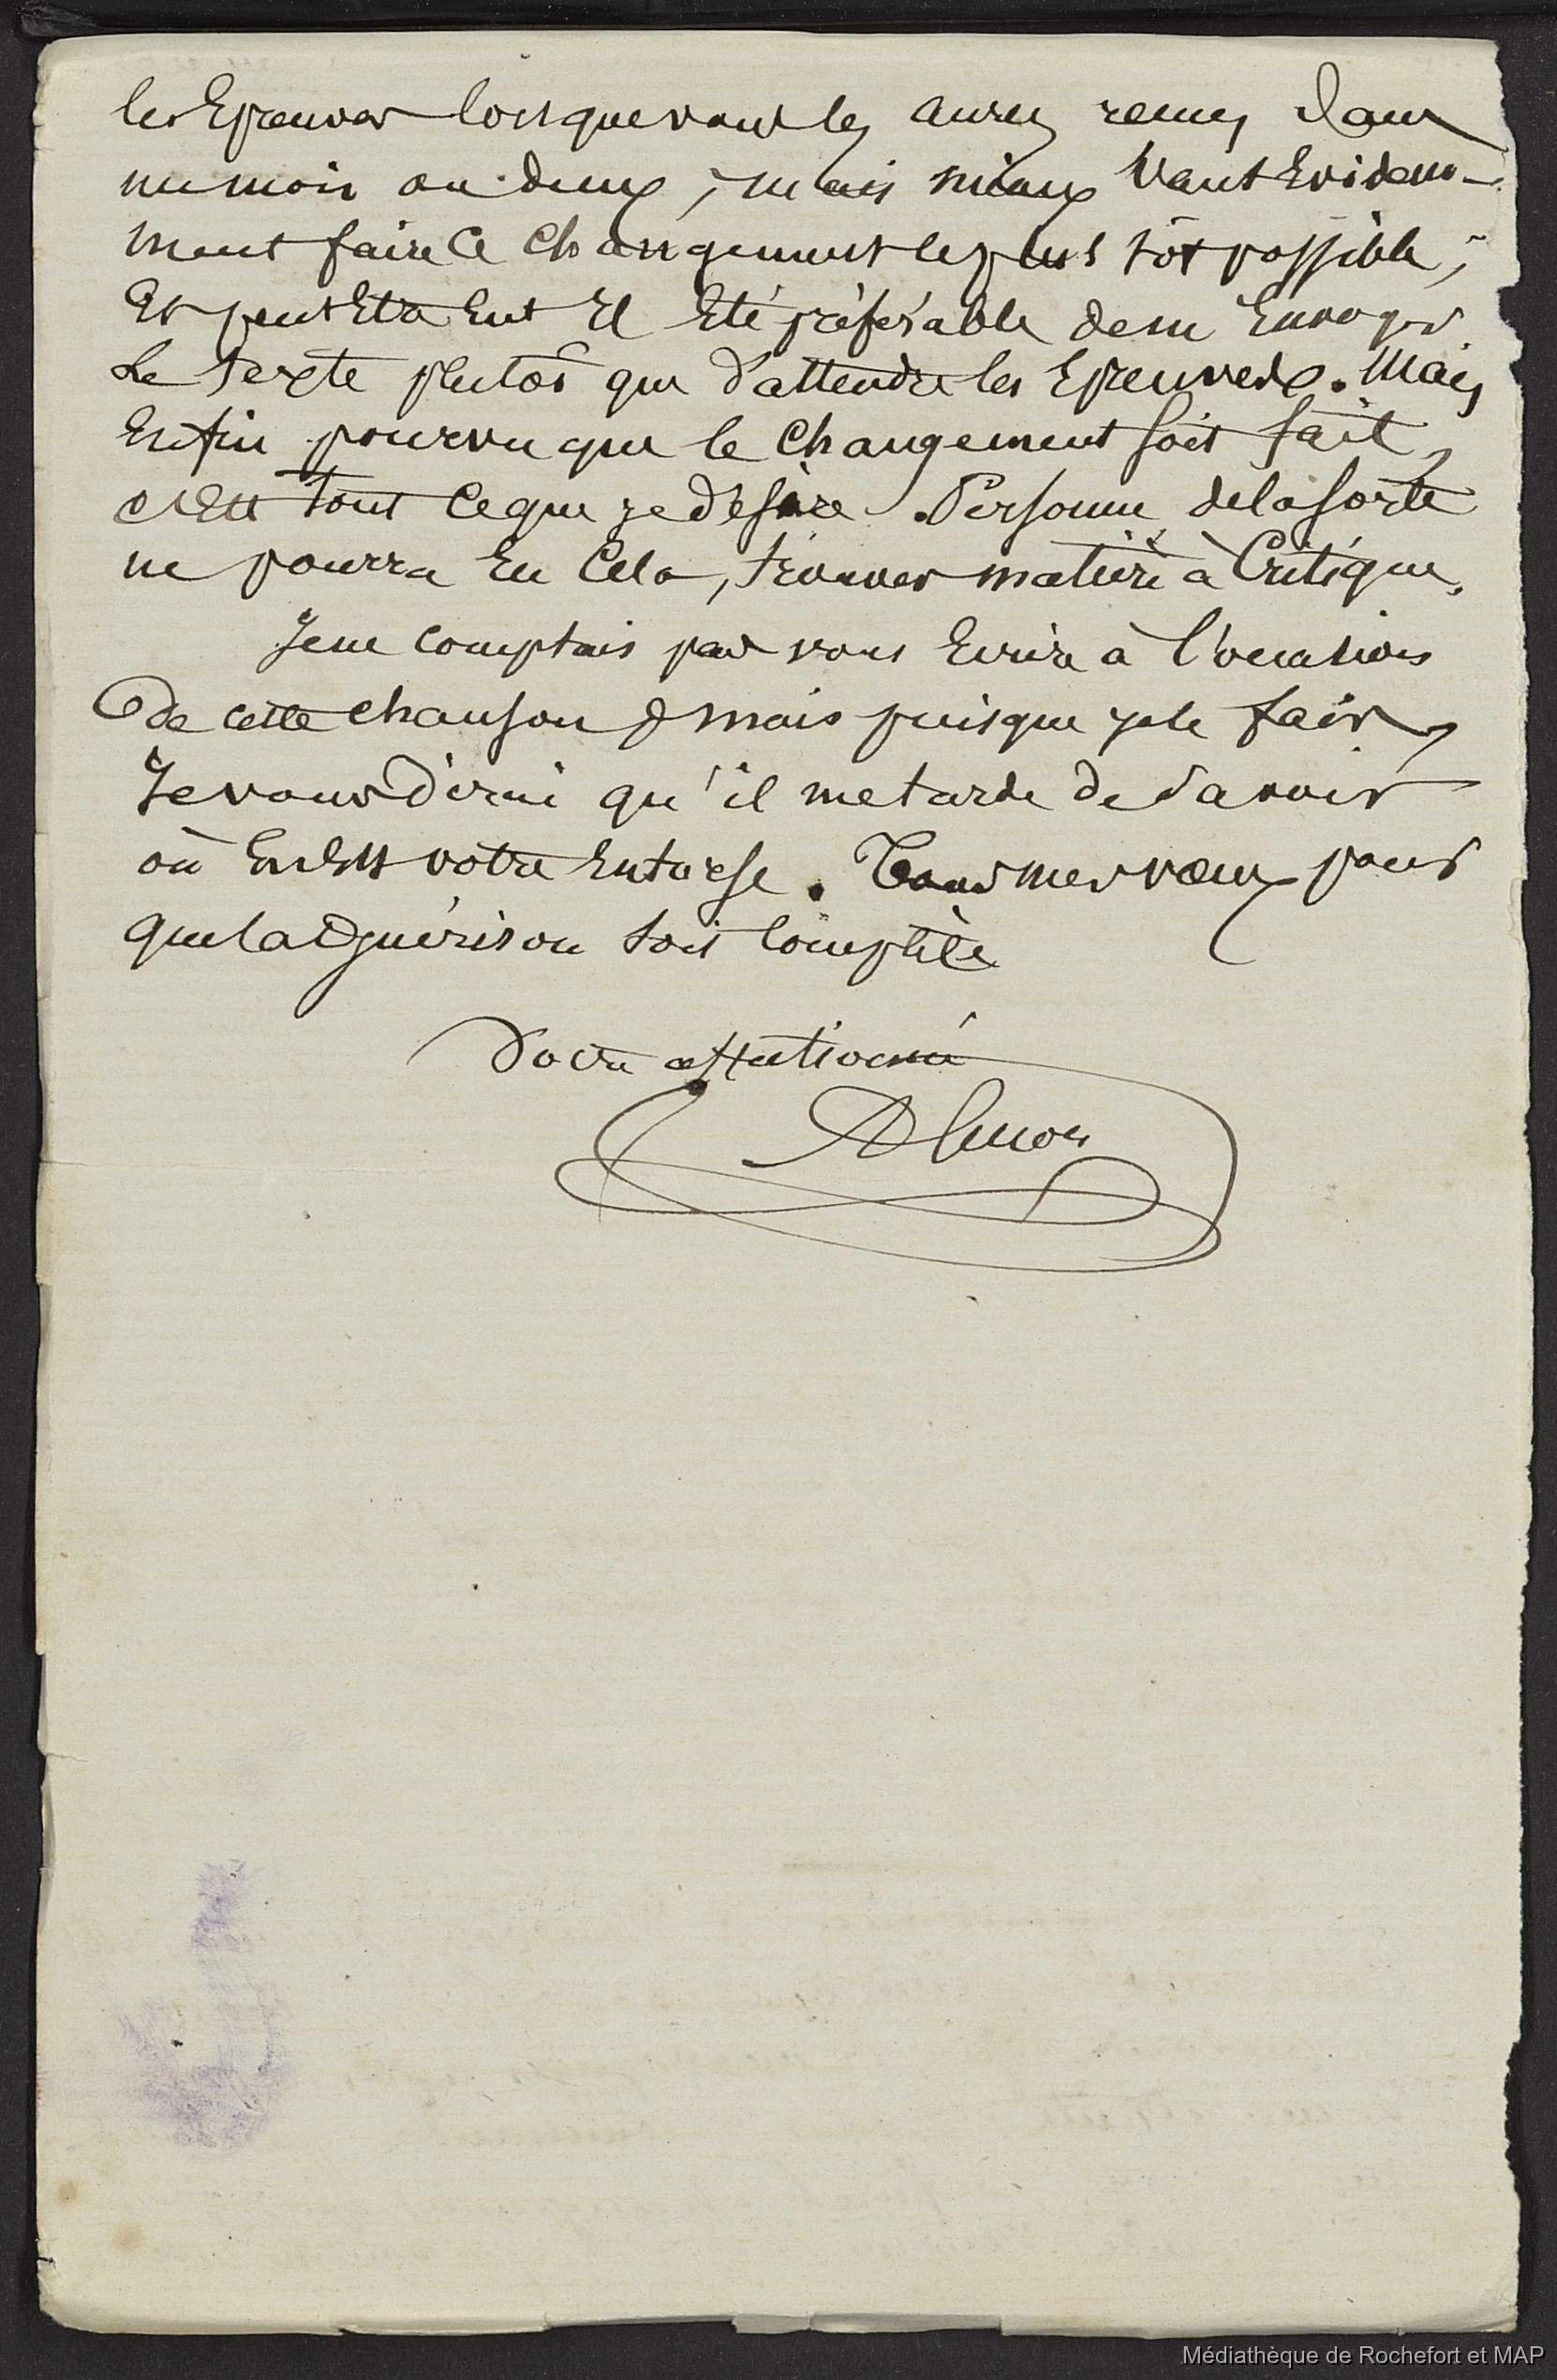 les Epreuves lorsque vous les aurez reçues dans
un mois ou deux ; mais mieux vaut Evidem-
ment faire le changement le plus tôt possible ;
Et peut Etre Eut Il Eté préférable de m'Envoyer
Le texte plutôt que d'attendre les Epreuves. Mais
Enfin pourvu que le changement soit fait,
c'Est tout ce que je désire. Personne de la sorte
ne pourra En Cela, trouver matière à Critique.
Je ne comptais pas vous Ecrire à l'occasion
de cette chanson, mais puisque je le fais,
Je vous dirai qu'il me tarde de savoir
où En Est votre Entorse. Tous mes vœux pour
que la guérison soit Complète
Votre affectionné
Médiathèque de Rochefort et MAP